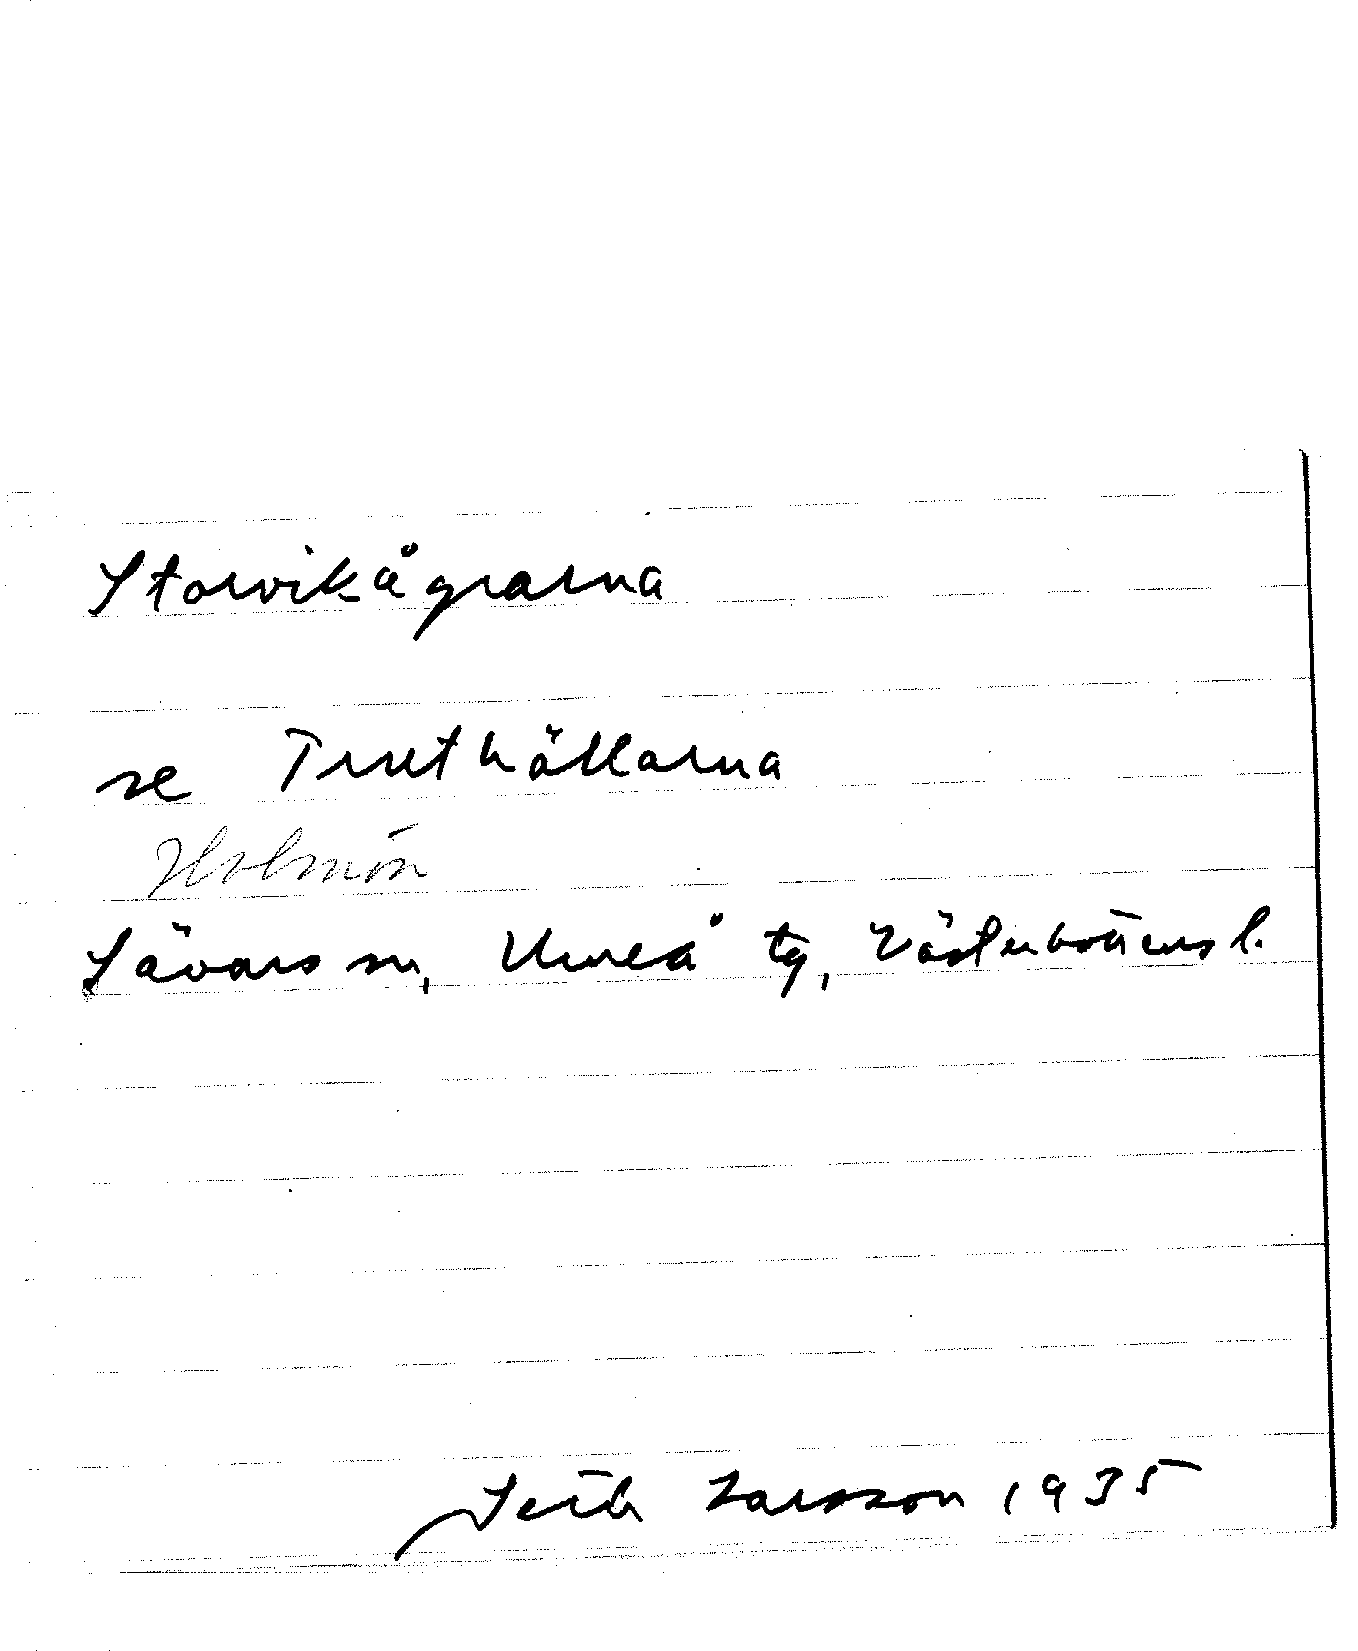 Storvikågrarna
se Truthällarna
Holmön
Sävars sn, Umeå tg, Västerbottens l.
Seth Larsson 1935